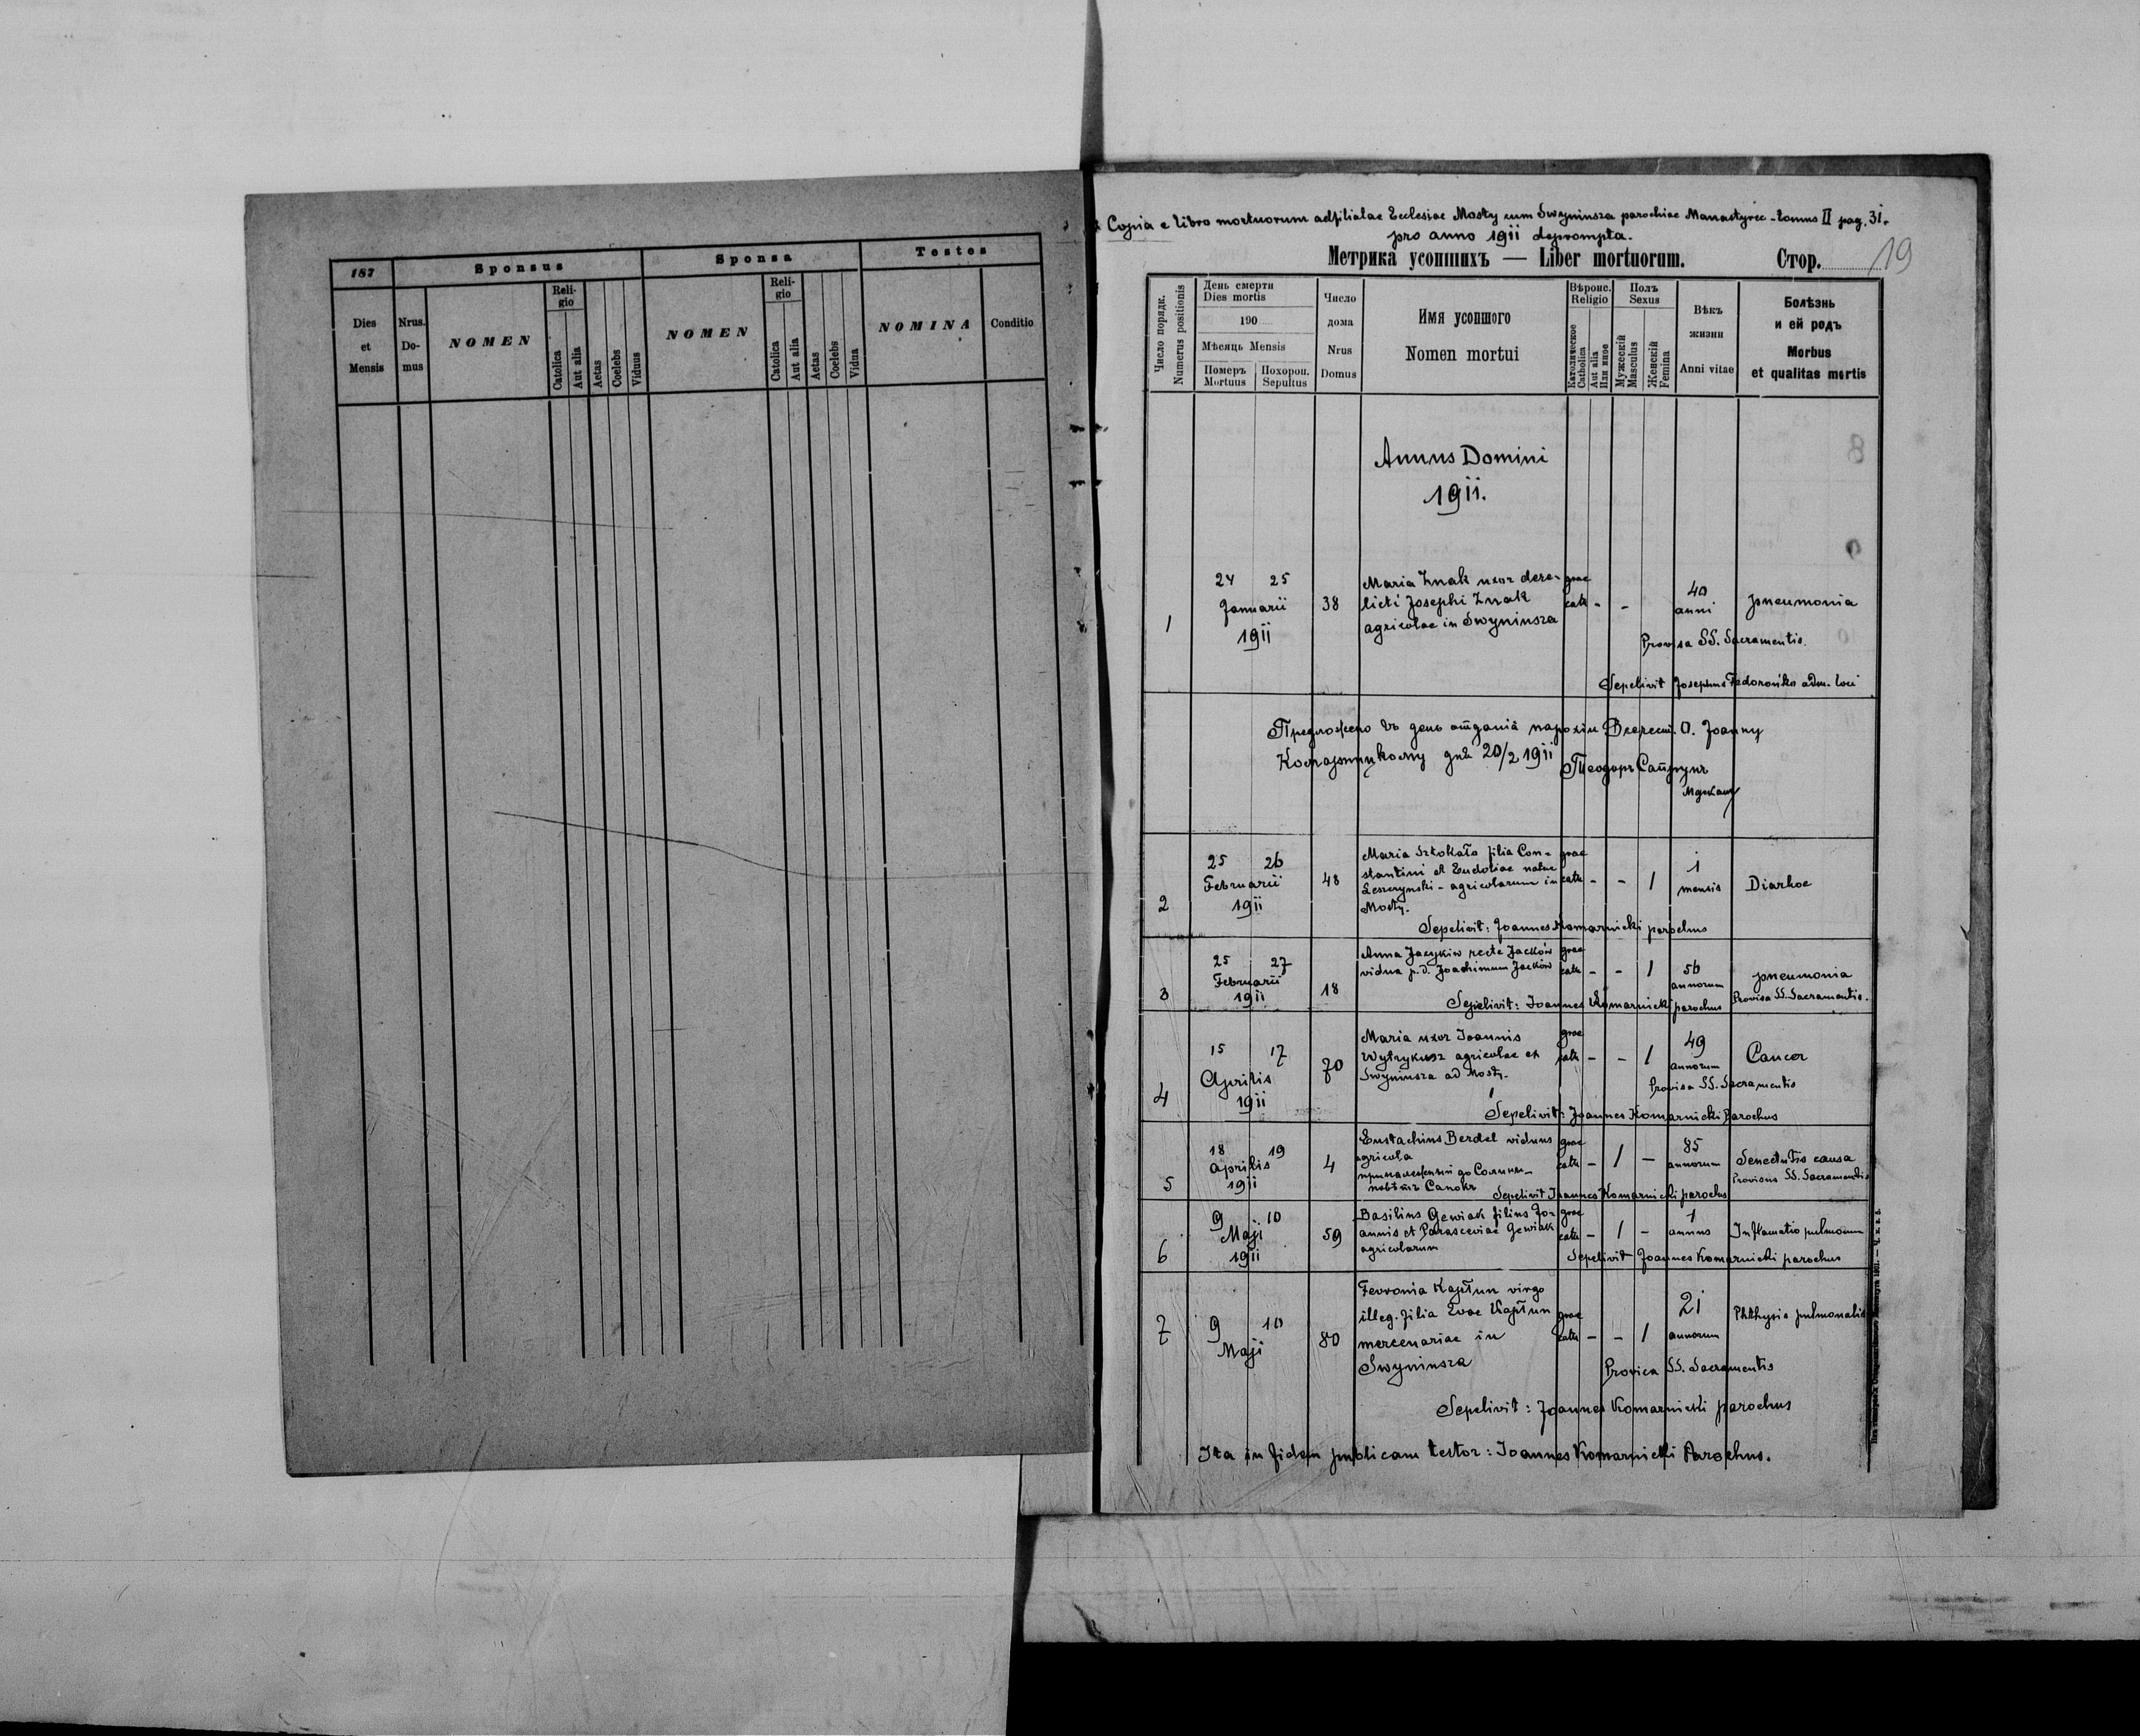 187
Sponsus
Sponsa
Testes
Dies et Mensis
Nrus. Domus
NOMEN
Religio
Catolica
Aut alia
Aetas
Coelebs
Viduus
NOMEN
Religio
Catolica
Aut alia
Aetas
Coelebs
Vidua
NOMINA
Conditio
Copia e libro mortuorum adfilialae Ecclesiae Mosty cum Swyninsza parochiae Manastyrec - tomus II pag. 31.
pro anno 1911 deprompta.
Метрика усопшихъ — Liber mortuorum.
Стор. 19
Число порядк.
Numerus positionis
День смерти
Dies mortis
190
Мѣсяць Mensis
Померъ
Mortuus
Похорон.
Sepultus
Число
дома
Nrus
Domus
Имя усопшого
Nomen mortui
Вѣроис.
Religio
Католическое
Catholica
Aut alia
Или иное
Полъ
Sexus
Мужескій
Masculus
Женскій
Femina
Вѣкъ
жизни
Anni vitae
Болѣзнь
и ей родъ
Morbus
et qualitas mortis
Annus Domini
1911.
1
24 25
Januarii
1911
38
Maria Znak uxor dere-
licti Josephi Znak
agricolae in Swyninsza
grae
cath - -
40
anni
pneumonia
Provisa SS. Sacramentis.
Sepelivit Josephus Fedorońko adm. loci
Предложено въ день отданія парохіи Всечест. О. Іоанну
Комарницкому дня 20/2 1911
Теодоръ
2
25 26
Februarii
1911
48
Maria Sztokało filia Con-
stantini et Eudokiae natae
Leszczynski - agricolarum in
Mosty.
grae
cath - - 1
1
mensis
Diarhoe
Sepelivit: Joannes Komarnicki parochus
3
25 27
Februarii
1911
18
Anna Jacykiw recte Jacków
vidua p. d. Joachimum Jacków
grae
cath - - 1
56
annorum
pneumonia
Provisa SS. Sacramentis.
Sepelivit: Joannes Komarnicki parochus
4
15 17
Aprilis
1911
70
Maria uxor Joannis
Wytrykusz agricolae ex
Swyninsza ad Mosty.
grae
cath - - 1
49
annorum
Cancer
Provisa SS. Sacramentis
Sepelivit: Joannes Komarnicki Parochus
5
18 19
Aprilis
1911
4
Eustachius Berdel viduus
agricola
приналежный до Солини -
повѣтъ Санокъ
grae
cath - 1 -
85
annorum
Senectutis causa
Provisus SS. Sacramentis
Sepelivit Joannes Komarnicki parochus
6
9 10
Maji
1911
59
Basilius Gewiak filius Jo-
annis et Parasceviae Gewiak
agricolarum
grae
cath - 1 -
1
annus
Inflamatio pulmonum
Sepelivit Joannes Komarnicki parochus
7
9 10
Maji
80
Fevronia Kapłun virgo
illeg. filia Evae Kapłun
mercenariae in
Swyninsza
grae
cath - - 1
21
annorum
Phthysis pulmonalis
Provisa SS. Sacramentis
Sepelivit: Joannes Komarnicki parochus
Ita in fidem publicam testor: Joannes Komarnicki Parochus.